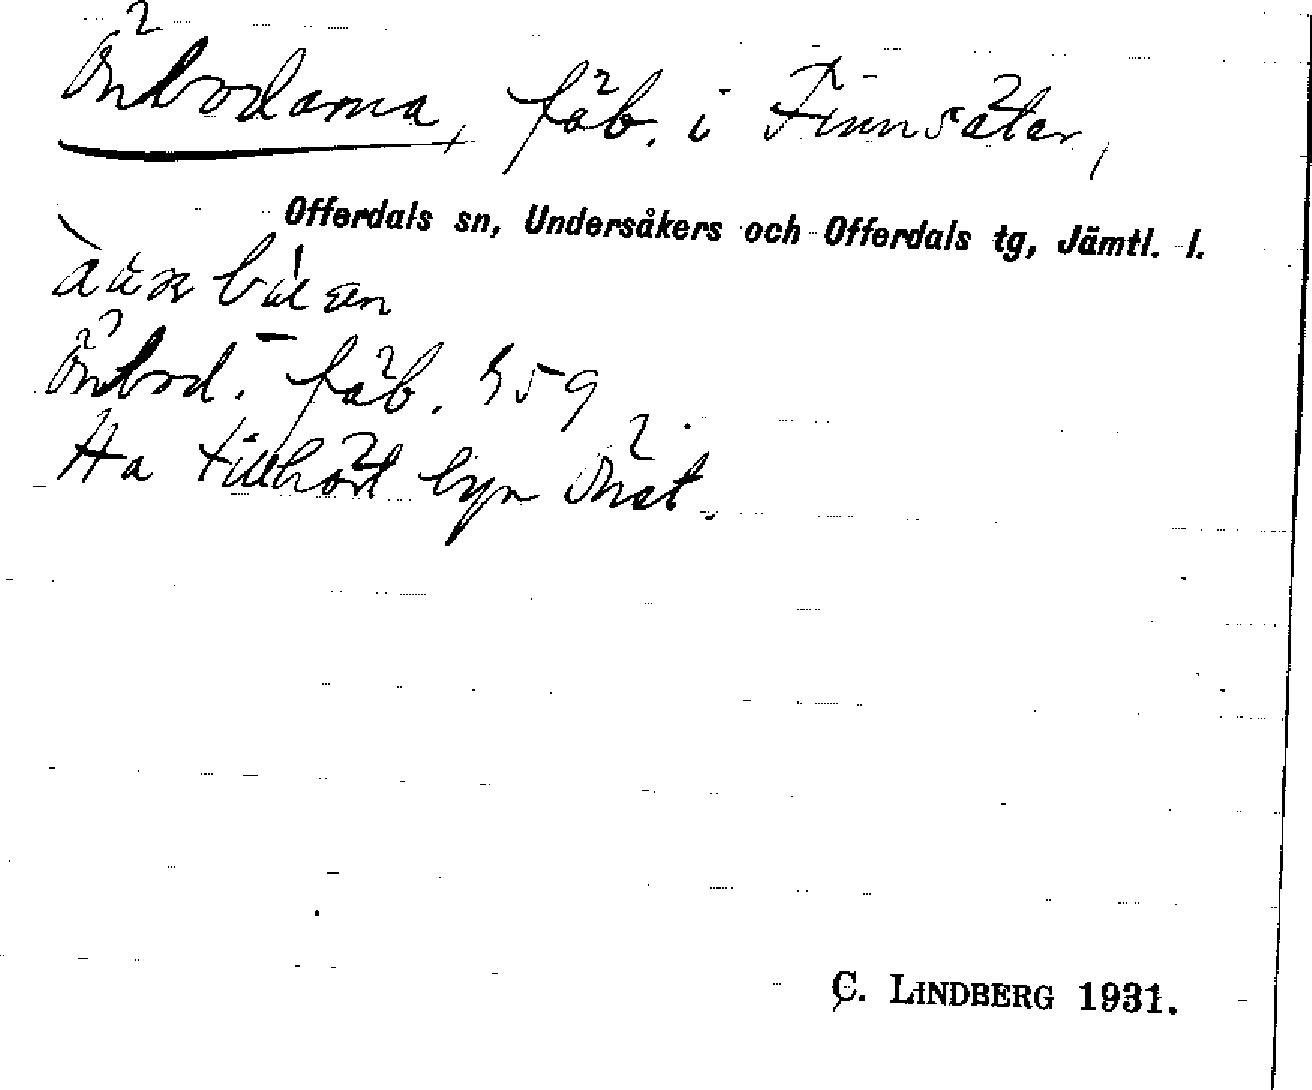 Önbodarna, fäb. i Finnsäter,
Offerdals sn, Undersåkers och Offerdals tg, Jämtl. l.
Önbod. – fäb. § 59
Ha tillhört byn Önet.
C. LINDBERG 1931.